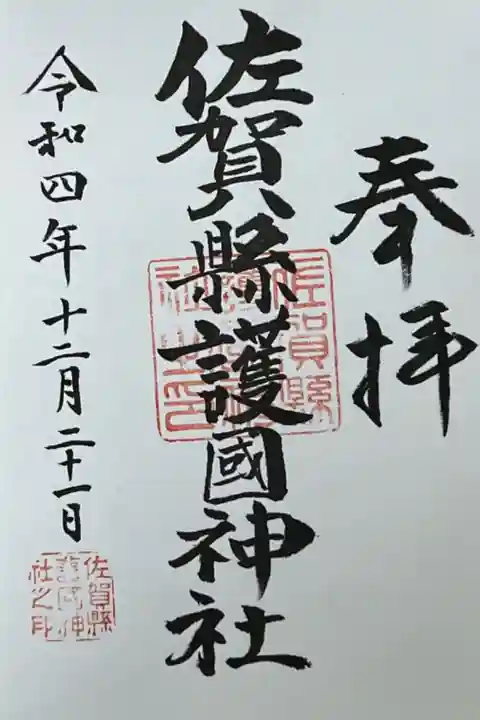 奉拝
佐賀縣護國神社
佐賀縣護國神社之印
令和四年十二月二十一日
佐賀縣護國神社之印